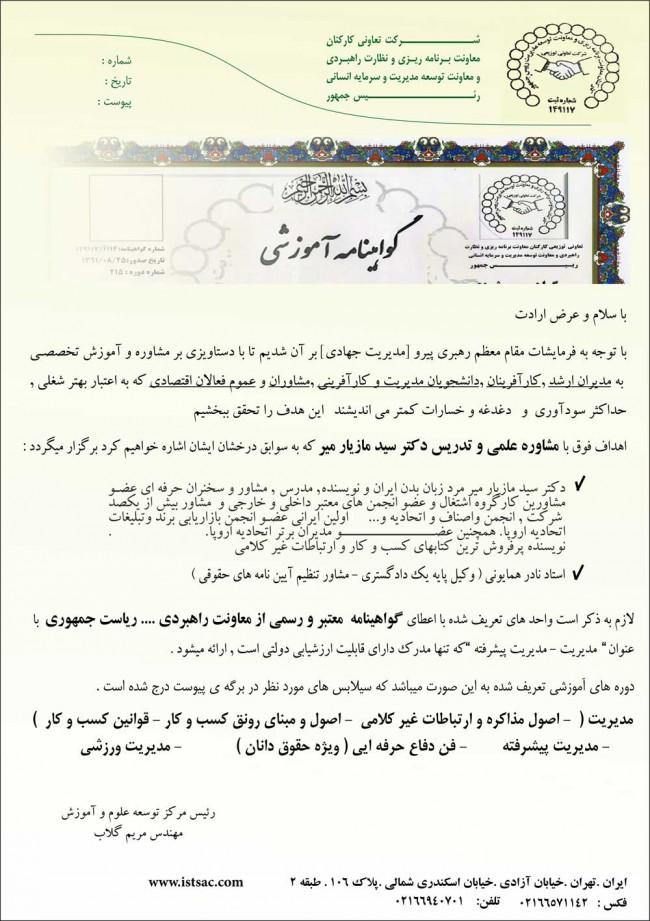 شرکت تعاونی کارکنان
معاونت برنامه ریزی و نظارت راهبردی
و معاونت توسعه مدیریت و سرمایه انسانی
رئیس جمهور
شماره :
تاریخ :
پیوست :
شرکت تعاونی توزیعی
شماره ثبت
۱۴۹۱۱۷
بسم الله الرحمن الرحیم
گواهینامه آموزشی
شماره ثبت
۱۴۹۱۱۷
تعاونی توزیعی کارکنان معاونت برنامه ریزی و نظارت
راهبردی و معاونت توسعه مدیریت و سرمایه انسانی
رئیس جمهور
تاریخ صدور: ۱۳۹۱/۰۸/۲۵
شماره دوره : ۲۱۵
با سلام و عرض ارادت
با توجه به فرمایشات مقام معظم رهبری پیرو [مدیریت جهادی] بر آن شدیم تا با دستاویزی بر مشاوره و آموزش تخصصی
به مدیران ارشد ,کارآفرینان ,دانشجویان مدیریت و کارآفرینی ,مشاوران و عموم فعالان اقتصادی که به اعتبار بهتر شغلی ,
حداکثر سودآوری و دغدغه و خسارات کمتر می اندیشند این هدف را تحقق ببخشیم
اهداف فوق با مشاوره علمی و تدریس دکتر سید مازیار میر که به سوابق درخشان ایشان اشاره خواهیم کرد برگزار میگردد :
✓ دکتر سید مازیار میر مرد زبان بدن ایران و نویسنده, مدرس , مشاور و سخنران حرفه ای عضو
مشاورین کارگروه اشتغال و عضو انجمن های معتبر داخلی و خارجی و مشاور بیش از یکصد
شرکت , انجمن واصناف و اتحادیه و... اولین ایرانی عضو انجمن بازاریابی برند وتبلیغات
اتحادیه اروپا. همچنین عضو مدیران برتر اتحادیه اروپا. .
نویسنده پرفروش ترین کتابهای کسب و کار و ارتباطات غیر کلامی
✓ استاد نادر همایونی ( وکیل پایه یک دادگستری - مشاور تنظیم آیین نامه های حقوقی )
لازم به ذکر است واحد های تعریف شده با اعطای گواهینامه معتبر و رسمی از معاونت راهبردی .... ریاست جمهوری با
عنوان “ مدیریت - مدیریت پیشرفته “که تنها مدرک دارای قابلیت ارزشیابی دولتی است , ارائه میشود .
دوره های آموزشی تعریف شده به این صورت میباشد که سیلابس های مورد نظر در برگه ی پیوست درج شده است .
مدیریت ( - اصول مذاکره و ارتباطات غیر کلامی - اصول و مبنای رونق کسب و کار - قوانین کسب و کار )
- مدیریت پیشرفته - فن دفاع حرفه ایی ( ویژه حقوق دانان ) - مدیریت ورزشی
رئیس مرکز توسعه علوم و آموزش
مهندس مریم گلاب
ایران .تهران .خیابان آزادی .خیابان اسکندری شمالی .پلاک ۱۰۶ . طبقه ۲ www.istsac.com
فکس : ۰۲۱۶۶۵۷۱۱۴۲ تلفن: ۰۲۱۶۶۹۴۰۷۰۱